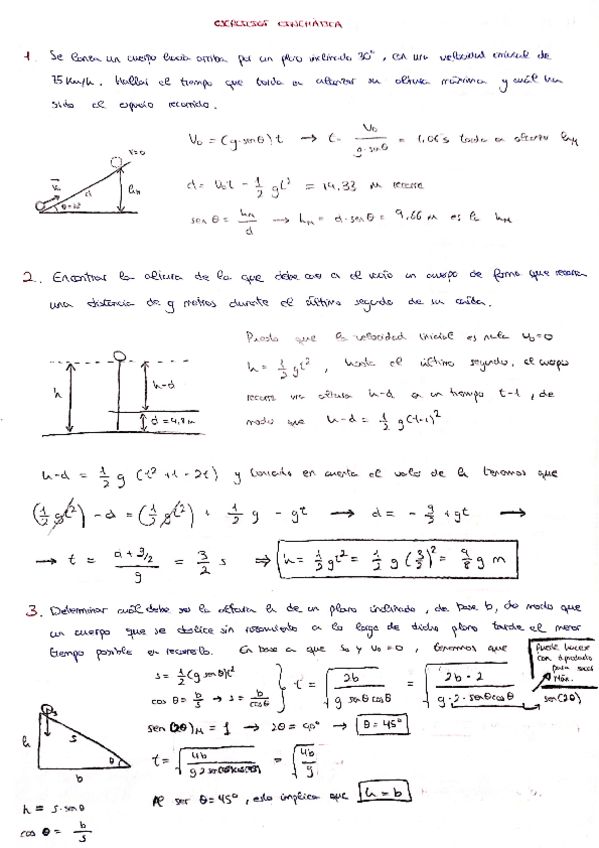 EJERCICIOS CINEMÁTICA
1. Se lanza un cuerpo hacia arriba por un plano inclinado 30°, con una velocidad inicial de
75 Km/h. Hallar el tiempo que tarda en alcanzar su altura máxima y cuál ha
sido el espacio recorrido.
V₀ = (g·senθ) t → t = V₀ / (g·senθ) = s tarda en alcanzar hM
v=0
d = V₀t - 1/2 gt² = 14,33 m recorre
d
hM
sen θ = hM/d → hM = d·senθ = 9,66 m es la hM
2. Encontrar la altura de la que debe caer en el vacío un cuerpo de forma que recorra
una distancia de g metros durante el último segundo de su caída.
Puesto que la velocidad inicial es nula v₀=0
h = 1/2 gt², hasta el último segundo, el cuerpo
recorre una altura h-d en un tiempo t-1, de
modo que h-d = 1/2 g(t-1)²
h
h-d
h-d = 1/2 g (t²+1-2t) y teniendo en cuenta el valor de h tenemos que
(1/2 gt²) - d = (1/2 gt²) + 1/2 g - gt → d = - g/2 + gt →
→ t = (d + g/2) / g = 3/2 s ⇒ h = 1/2 gt² = 1/2 g (3/2)² = 9/8 g m
3. Determinar cuál debe ser la altura h de un plano inclinado, de base b, de modo que
un cuerpo que se deslice sin rozamiento a lo largo de dicho plano tarde el menor
tiempo posible en recorrerlo. En base a que S₀ y V₀ = 0, tenemos que
Puede hacerse
con
para sacar
s = 1/2 (g senθ)t²
cos θ = b/s → s = b/cosθ
t = √(2b / (g senθ cosθ)) = √(2b·2 / (g·2·senθcosθ))
sen(2θ)
sen(2θ)M = 1 → 2θ = 90° → θ = 45°
h
s
θ
b
t = √(4b / ) = √(4b/g)
Al ser θ=45°, esto implica que h = b
h = s·senθ
cos θ = b/s